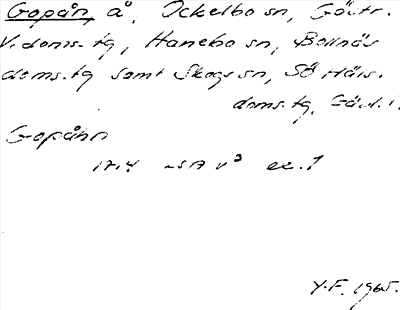 Gopån, å, Ockelbo sn, Gästr.
V. doms.tg, Hanebo sn, Bollnäs
doms.tg samt Skogs sn, Sö Häls.
doms.tg, Gävl. l.
Gopåhn
1714 LSA v³ ex. 1
Y.F. 1965.